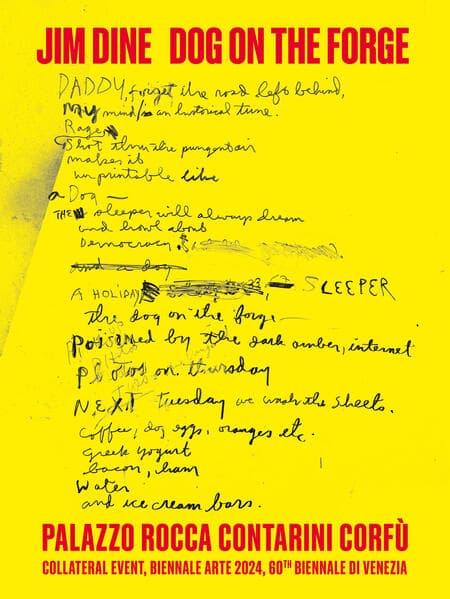 JIM DINE DOG ON THE FORGE
DADDY, forget the road left behind,
My mind/is an historical tune.
Rage
Shot thru the pungent air
makes it
unprintable like
a Dog —
THE sleeper will always dream
and howl about
Democracy
and a dog
A HOLIDAY SLEEPER
the dog on the forge —
Poisoned by the dark amber, internet
Photos on thursday
NEXT tuesday we wash the sheets.
Coffee, dog eggs, oranges etc.
Greek yogurt
bacon, ham
Water
and ice cream bars.
PALAZZO ROCCA CONTARINI CORFÙ
COLLATERAL EVENT, BIENNALE ARTE 2024, 60TH BIENNALE DI VENEZIA